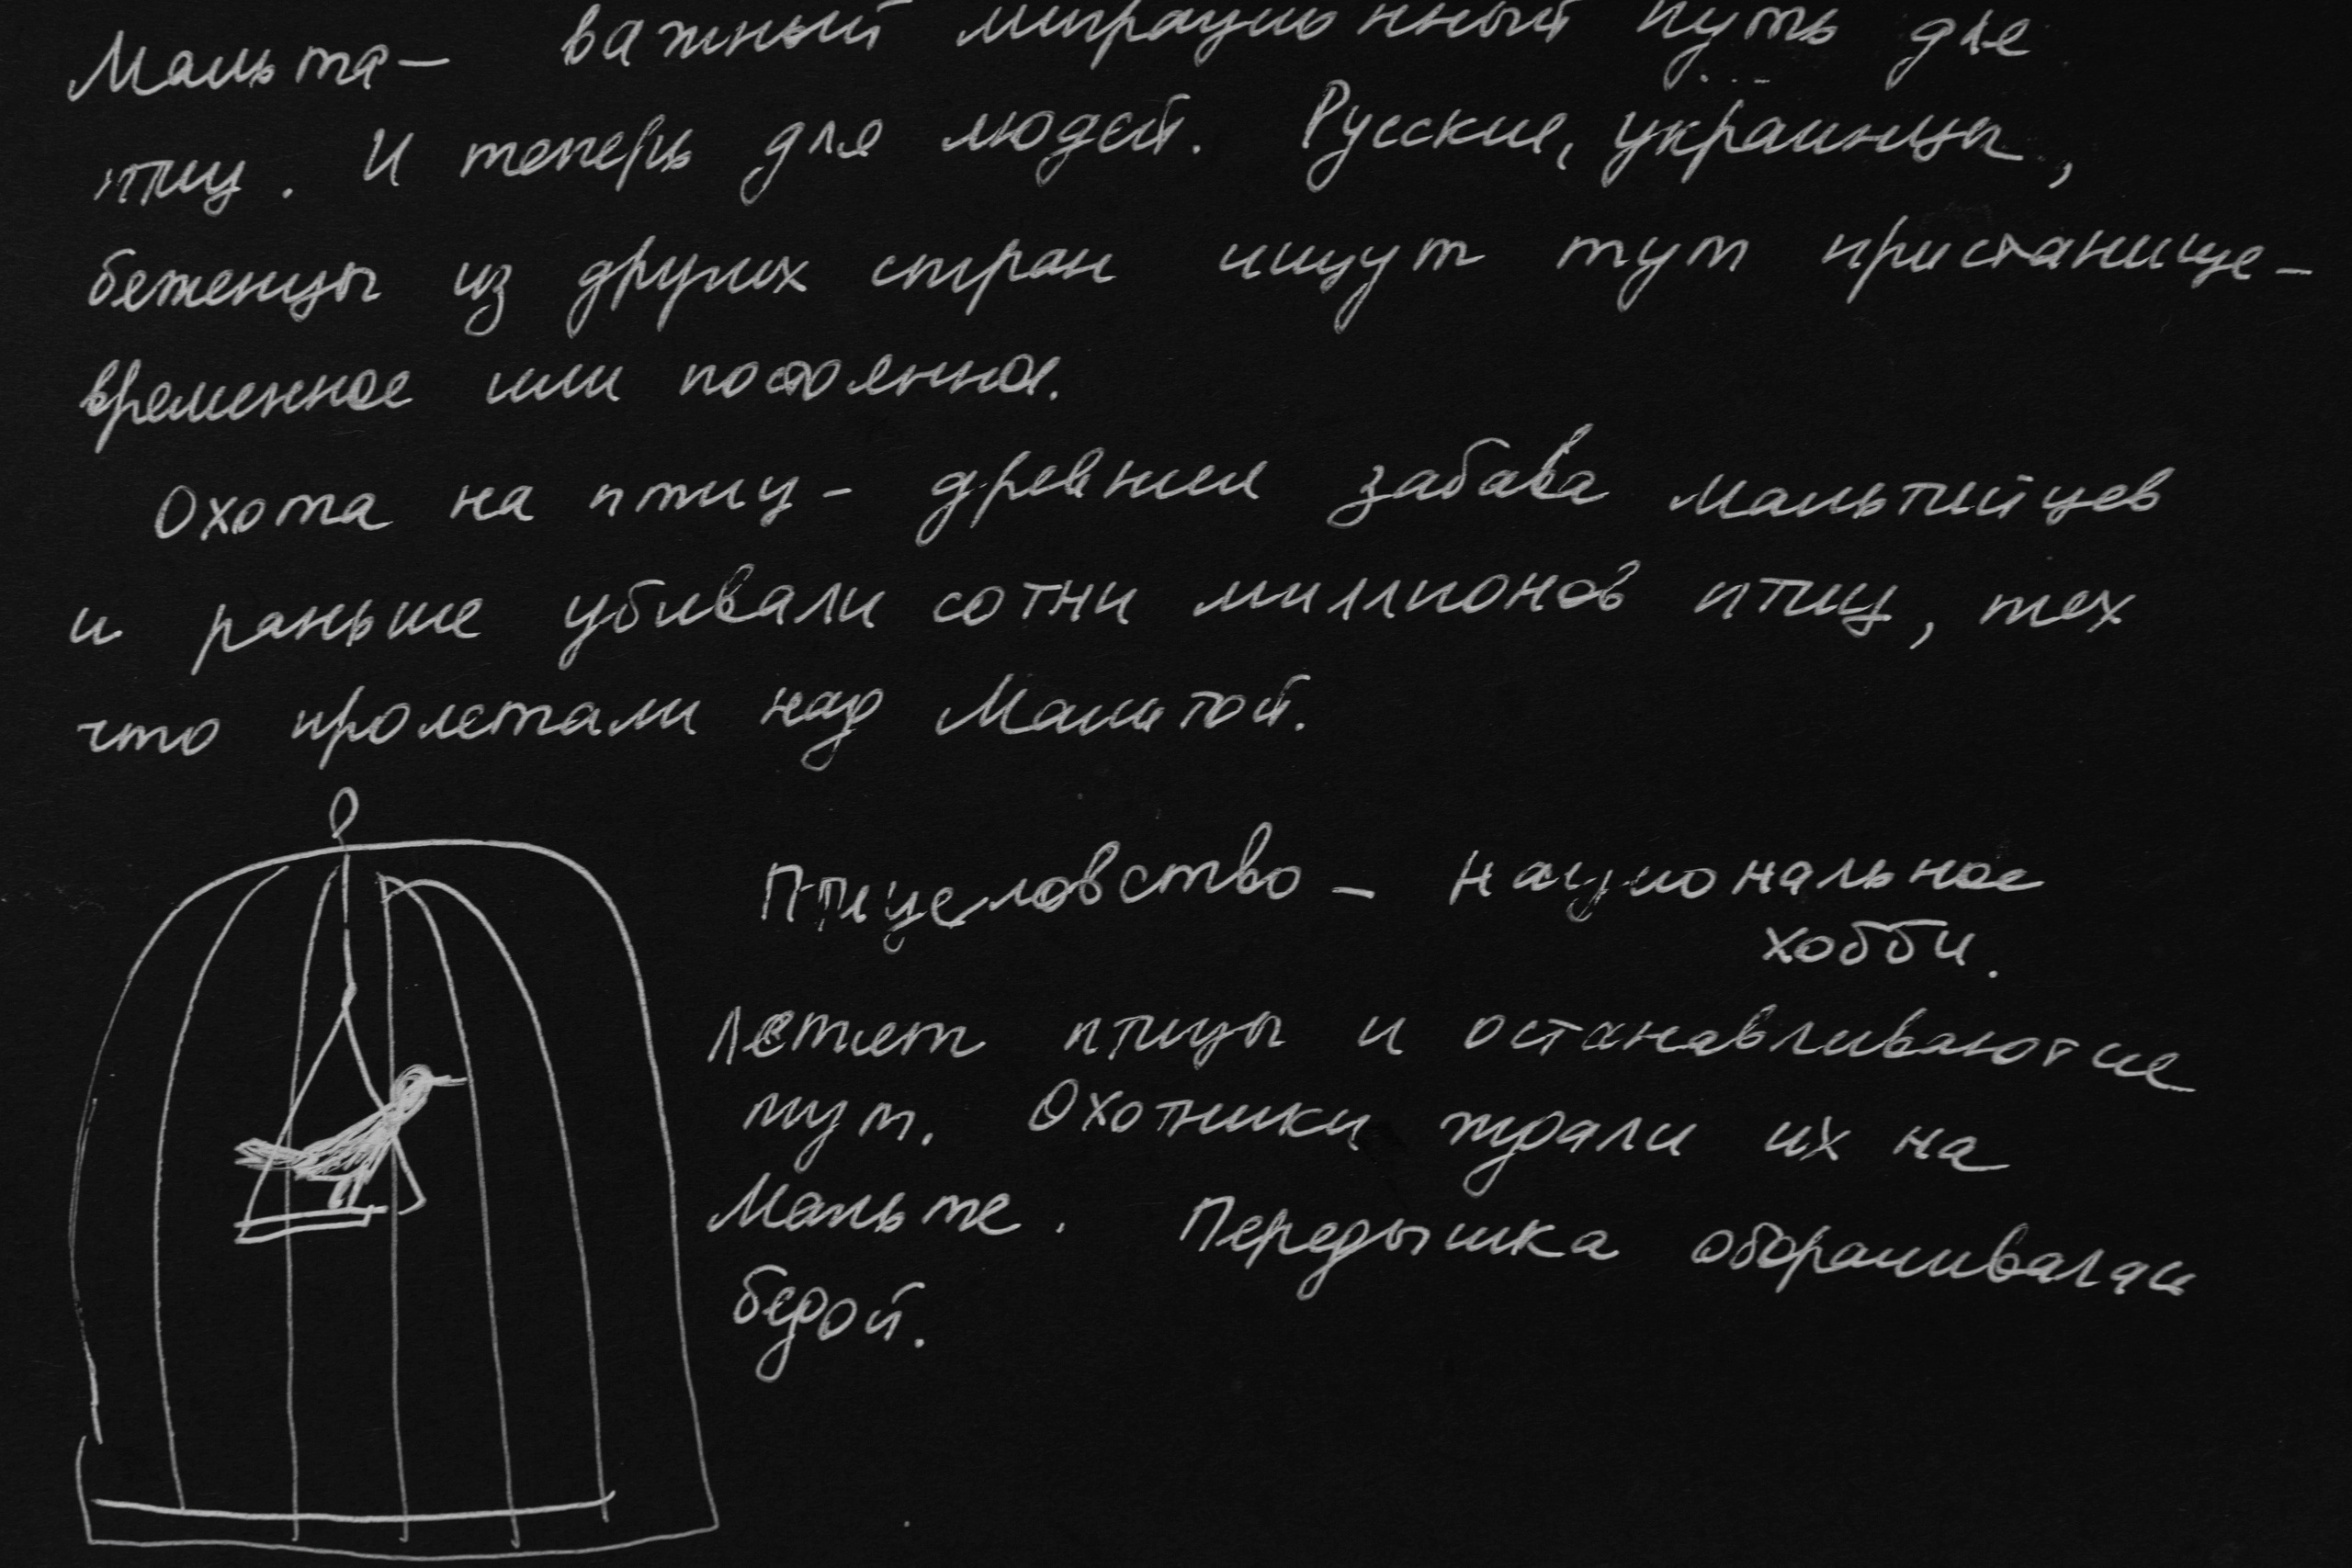 Мальта — важный миграционный путь для
птиц. И теперь для людей. Русские, украинцы,
беженцы из других стран ищут тут пристанище -
временное или постоянное.
Охота на птиц - древняя забава мальтийцев
и раньше убивали сотни миллионов птиц, тех
что пролетали над Мальтой.
Птицеловство - национальное
хобби.
Летят птицы и останавливаются
тут. Охотники ждали их на
Мальте. Передышка оборачивалась
бедой.